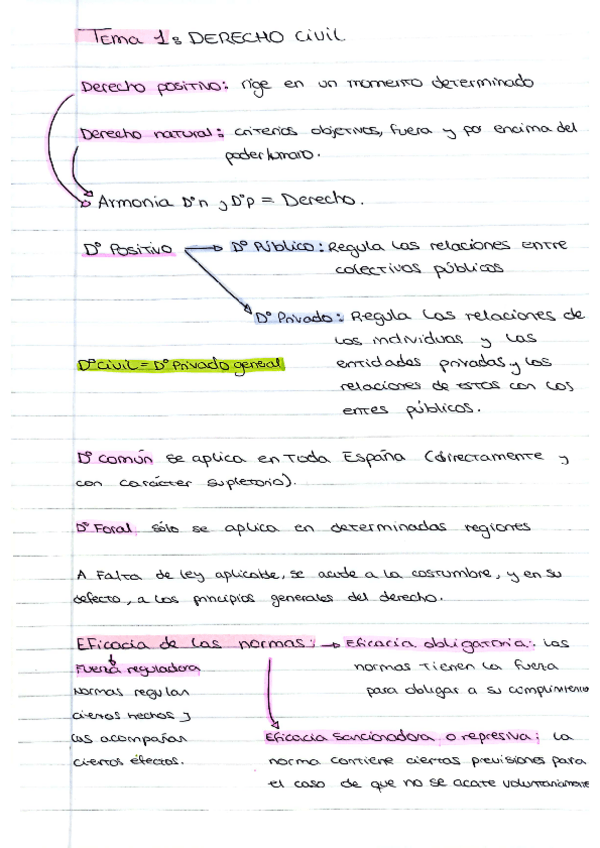 Tema 1: DERECHO CIVIL
Derecho positivo: rige en un momento determinado
Derecho natural: criterios objetivos, fuera y por encima del
poder humano.
Armonia Dºn y Dºp = Derecho.
Dº Positivo → Dº Público: Regula las relaciones entre
colectivos públicos
Dº Privado: Regula las relaciones de
los individuos y las
Dº Civil = Dº Privado general
entidades privadas y las
relaciones de estos con los
entes públicos.
Dº común se aplica en Toda España (directamente y
con carácter supletorio).
Dº Foral sólo se aplica en determinadas regiones
A Falta de ley aplicable, se acude a la costumbre, y en su
defecto, a los principios generales del derecho.
Eficacia de las normas: → Eficacia obligatoria: las
Fuerza reguladora
normas tienen la fuerza
Normas regulan
para obligar a su cumplimiento
ciertos hechos y
las acompañan
Eficacia sancionadora o represiva: la
ciertos efectos.
norma contiene ciertas previsiones para
el caso de que no se acate voluntariamente